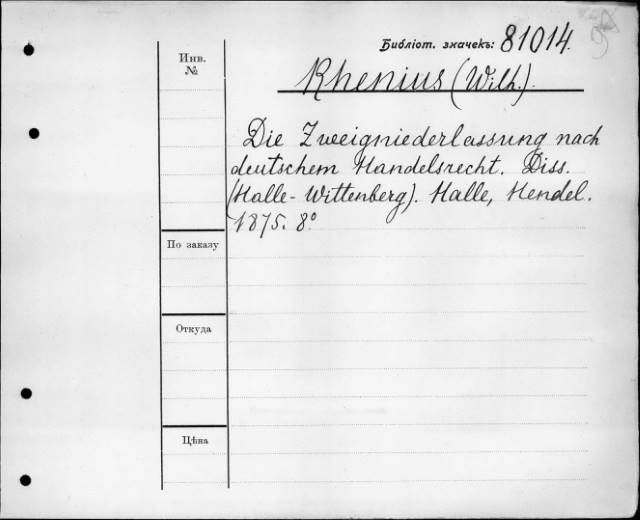 Библіот. значекъ: 81014.
Инв.
№
Rhenius (Wilh.).
Die Zweigniederlassung nach
deutschem Handelsrecht. Diss.
(Halle-Wittenberg). Halle, Hendel.
1875. 8°
По заказу
Откуда
Цѣна